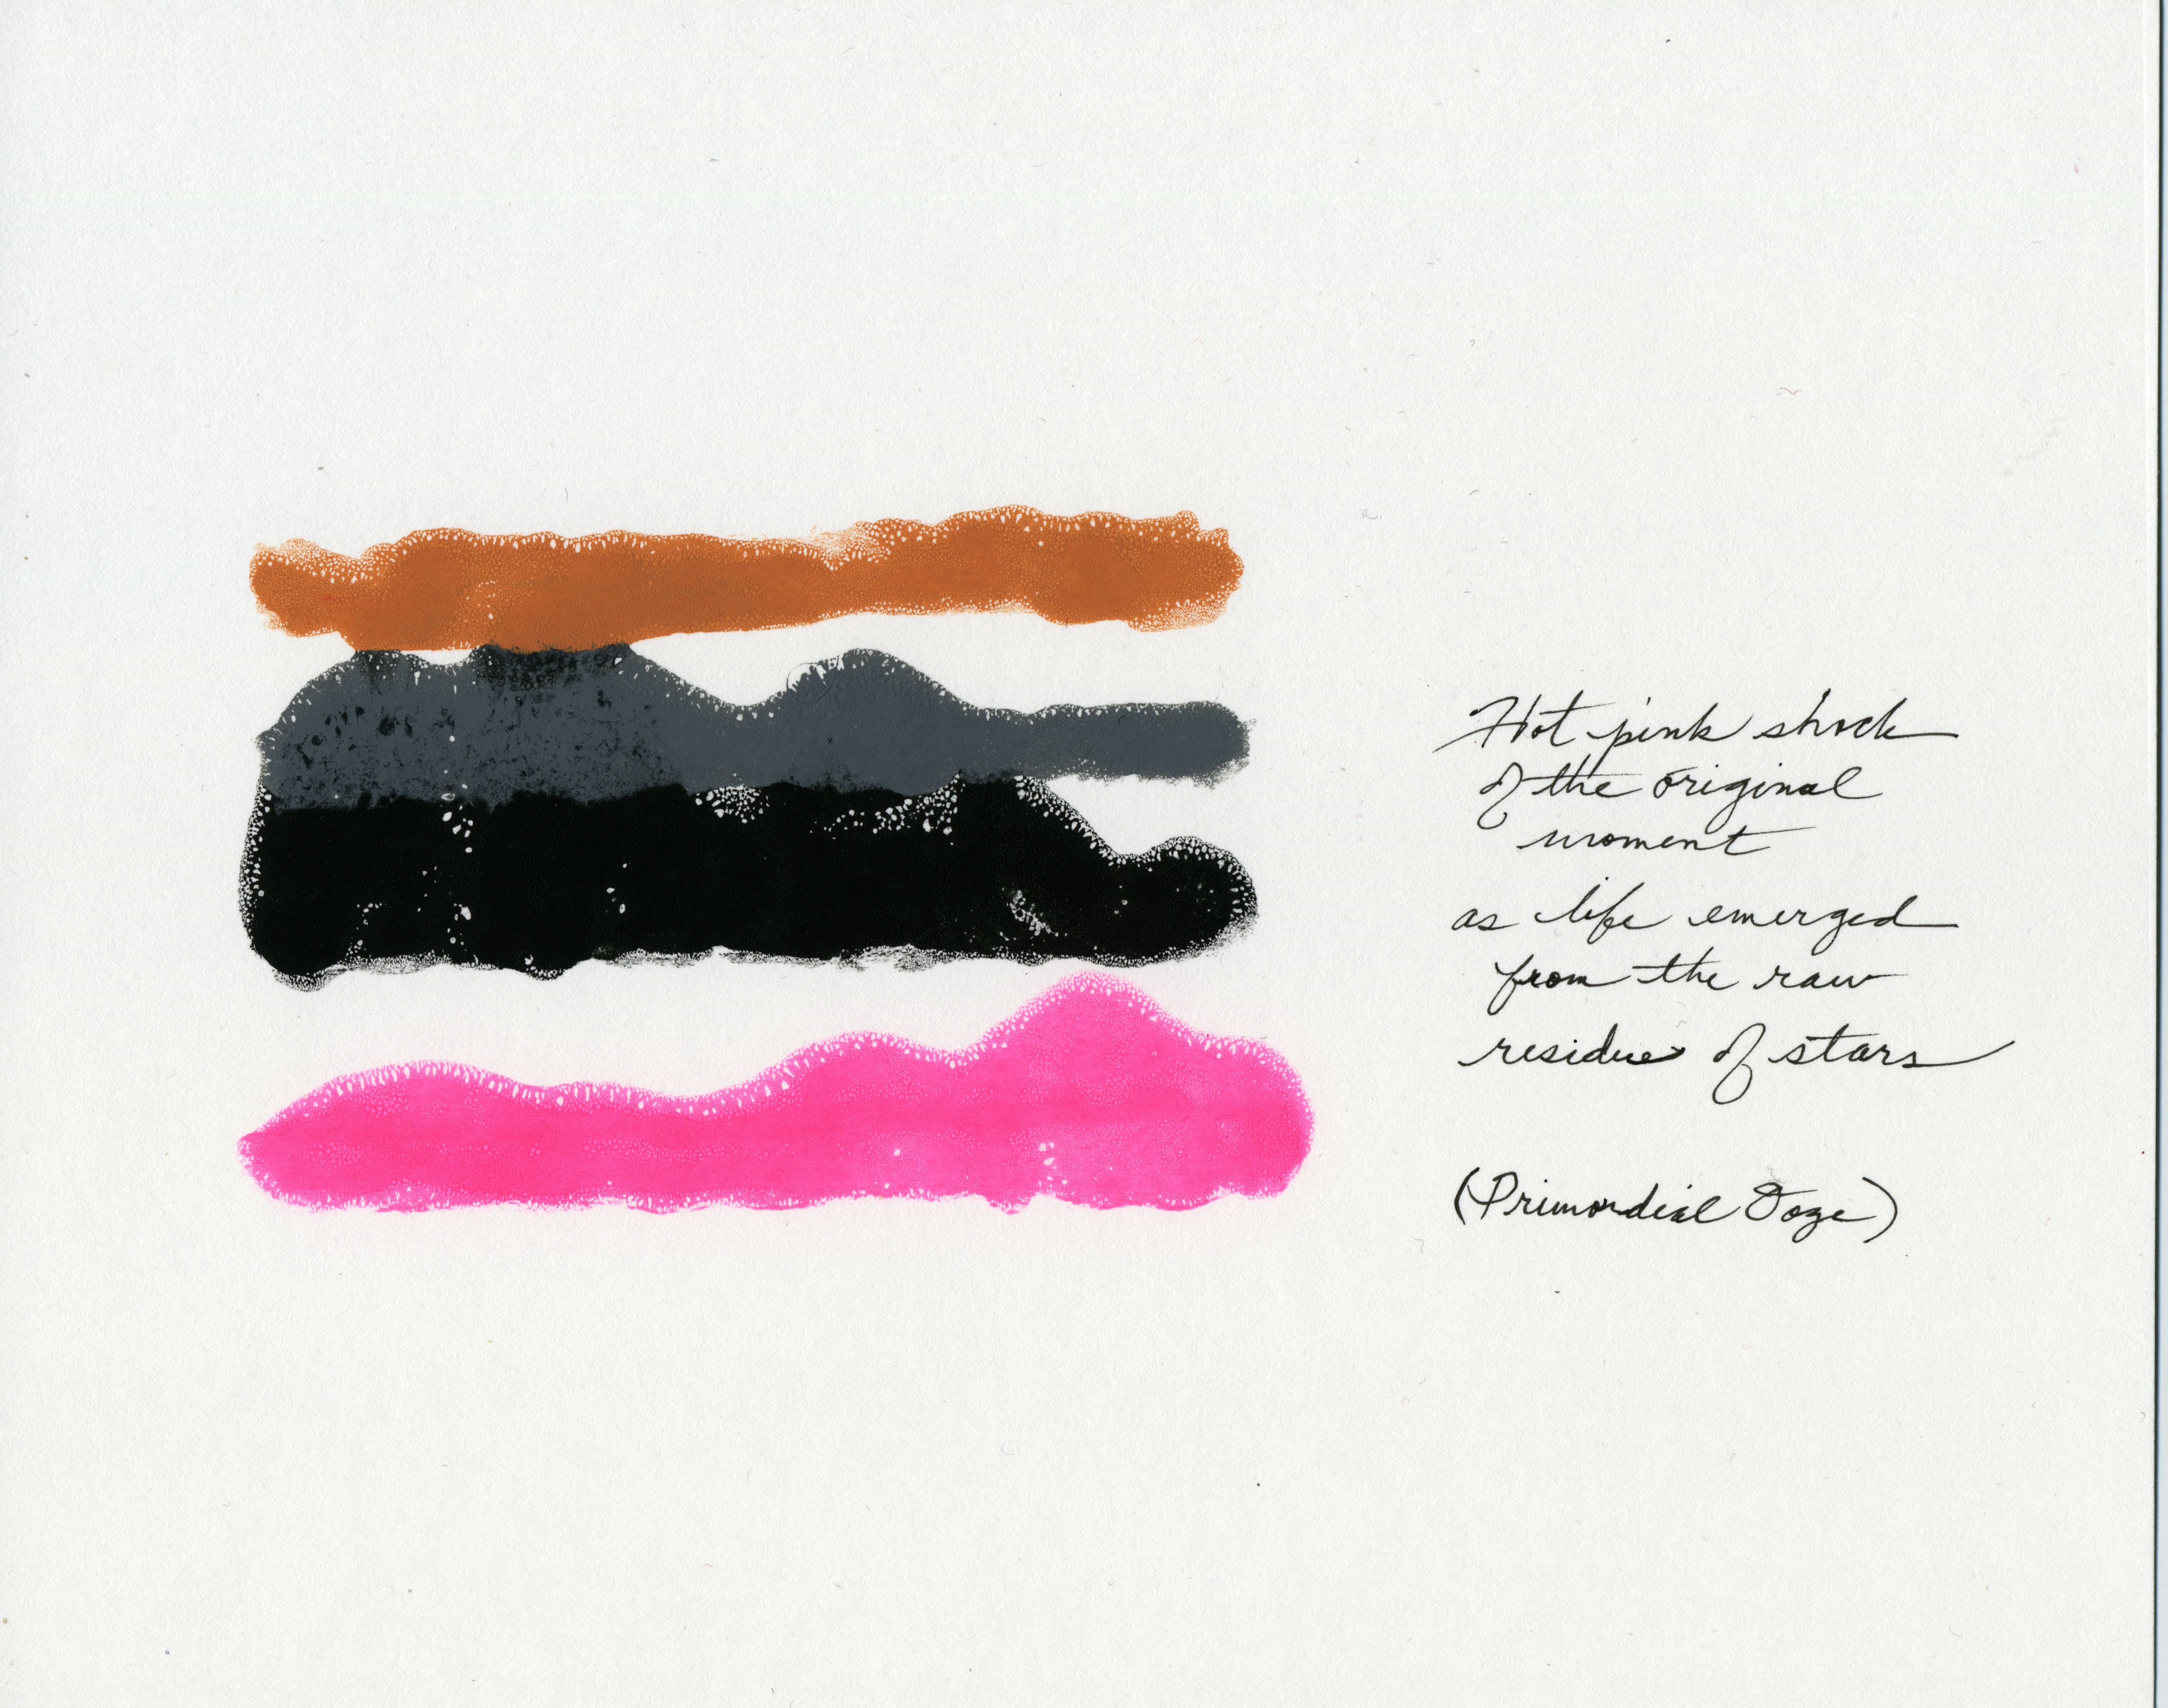 Hot pink shock
of the original
moment
as life emerged
from the raw
residue of stars
(Primordial Ooze)